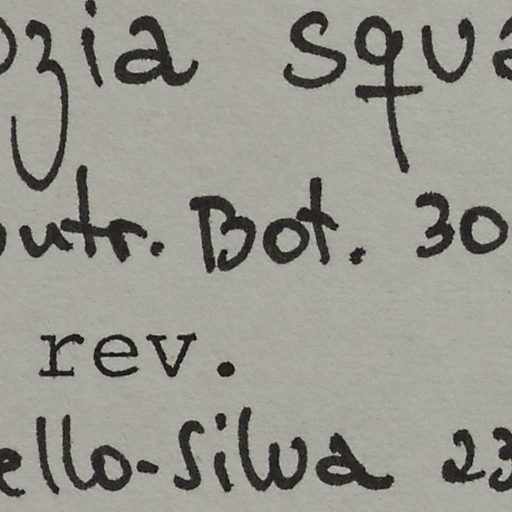 ozia squa
outr. Bot. 30
rev.
ello-Silva 23